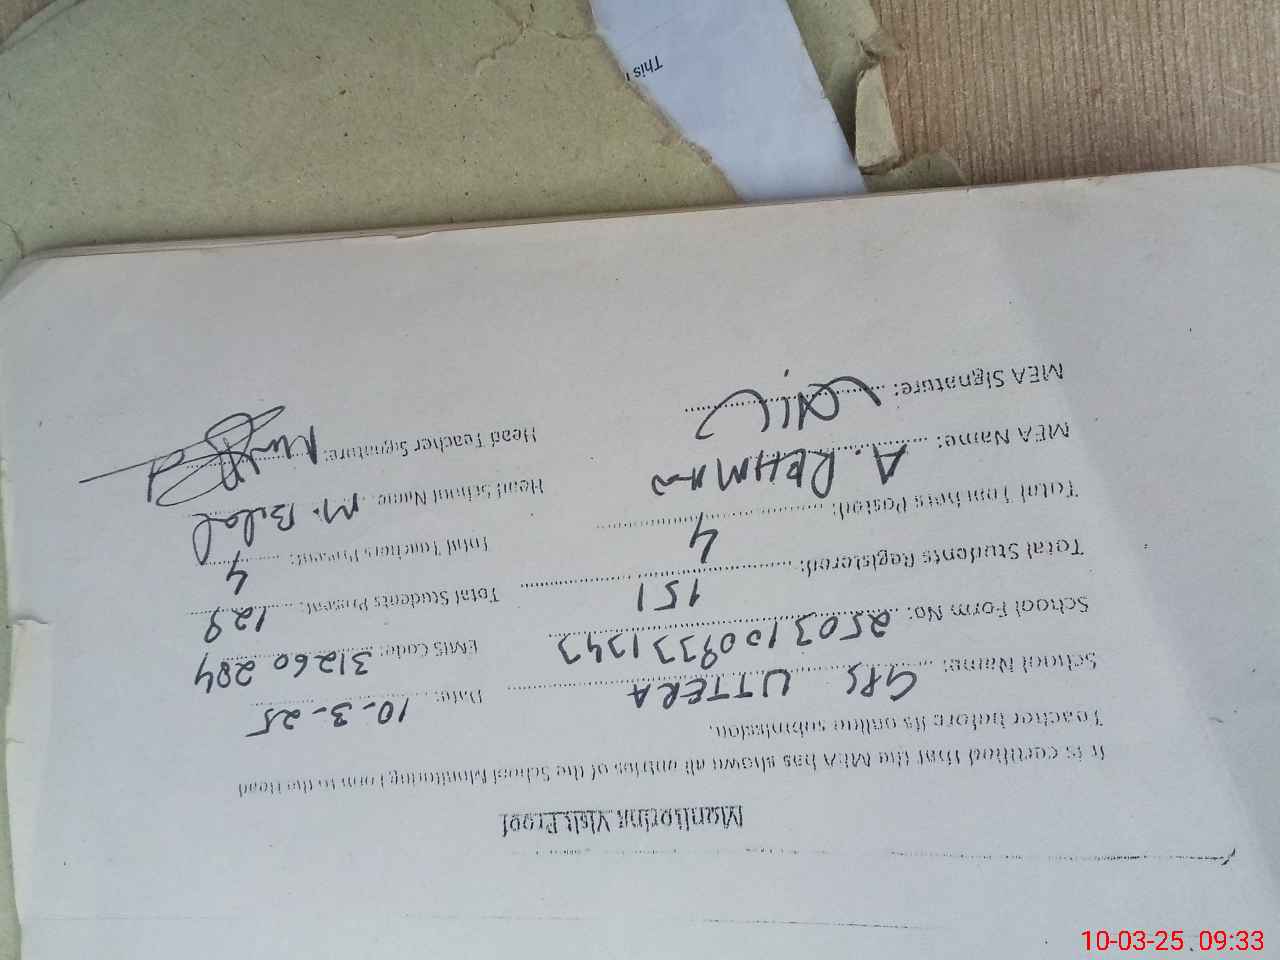 Monitoring Visit Proof
It is certified that the MEA has shown all entries of the School Monitoring Form to the Head
Teacher before its online submission.
School Name: GPS UTTERA Date: 10-3-25
School Form No: 25031009331343 EMIS Code: 31260204
Total Students Registered: 151 Total Students Present: 129
Total Teachers Posted: 4 Total Teachers Present: 4
MEA Name: A. REHMAN Head School Name: M. Bilal
MEA Signature: Head Teacher Signature:
This
10-03-25 09:33